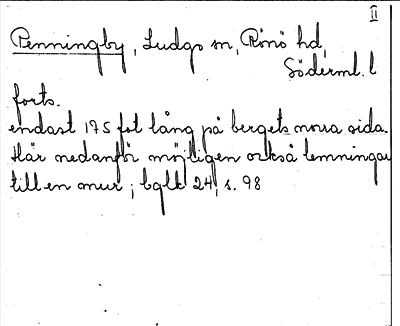 II
Penningby, Ludgo sn, Rönö hd,
Söderml. l
forts.
endast 175 fot lång på bergets norra sida.
Här nedanför möjligen också lemningar
till en mur; bglb 24, s. 98